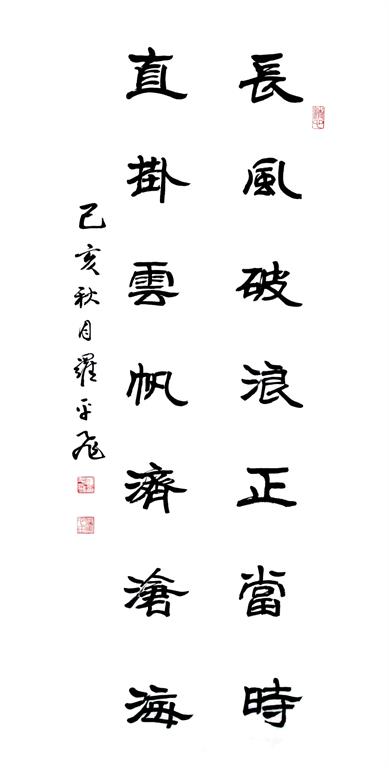 長風破浪正當時
直掛雲帆濟滄海
己亥秋月羅平飛